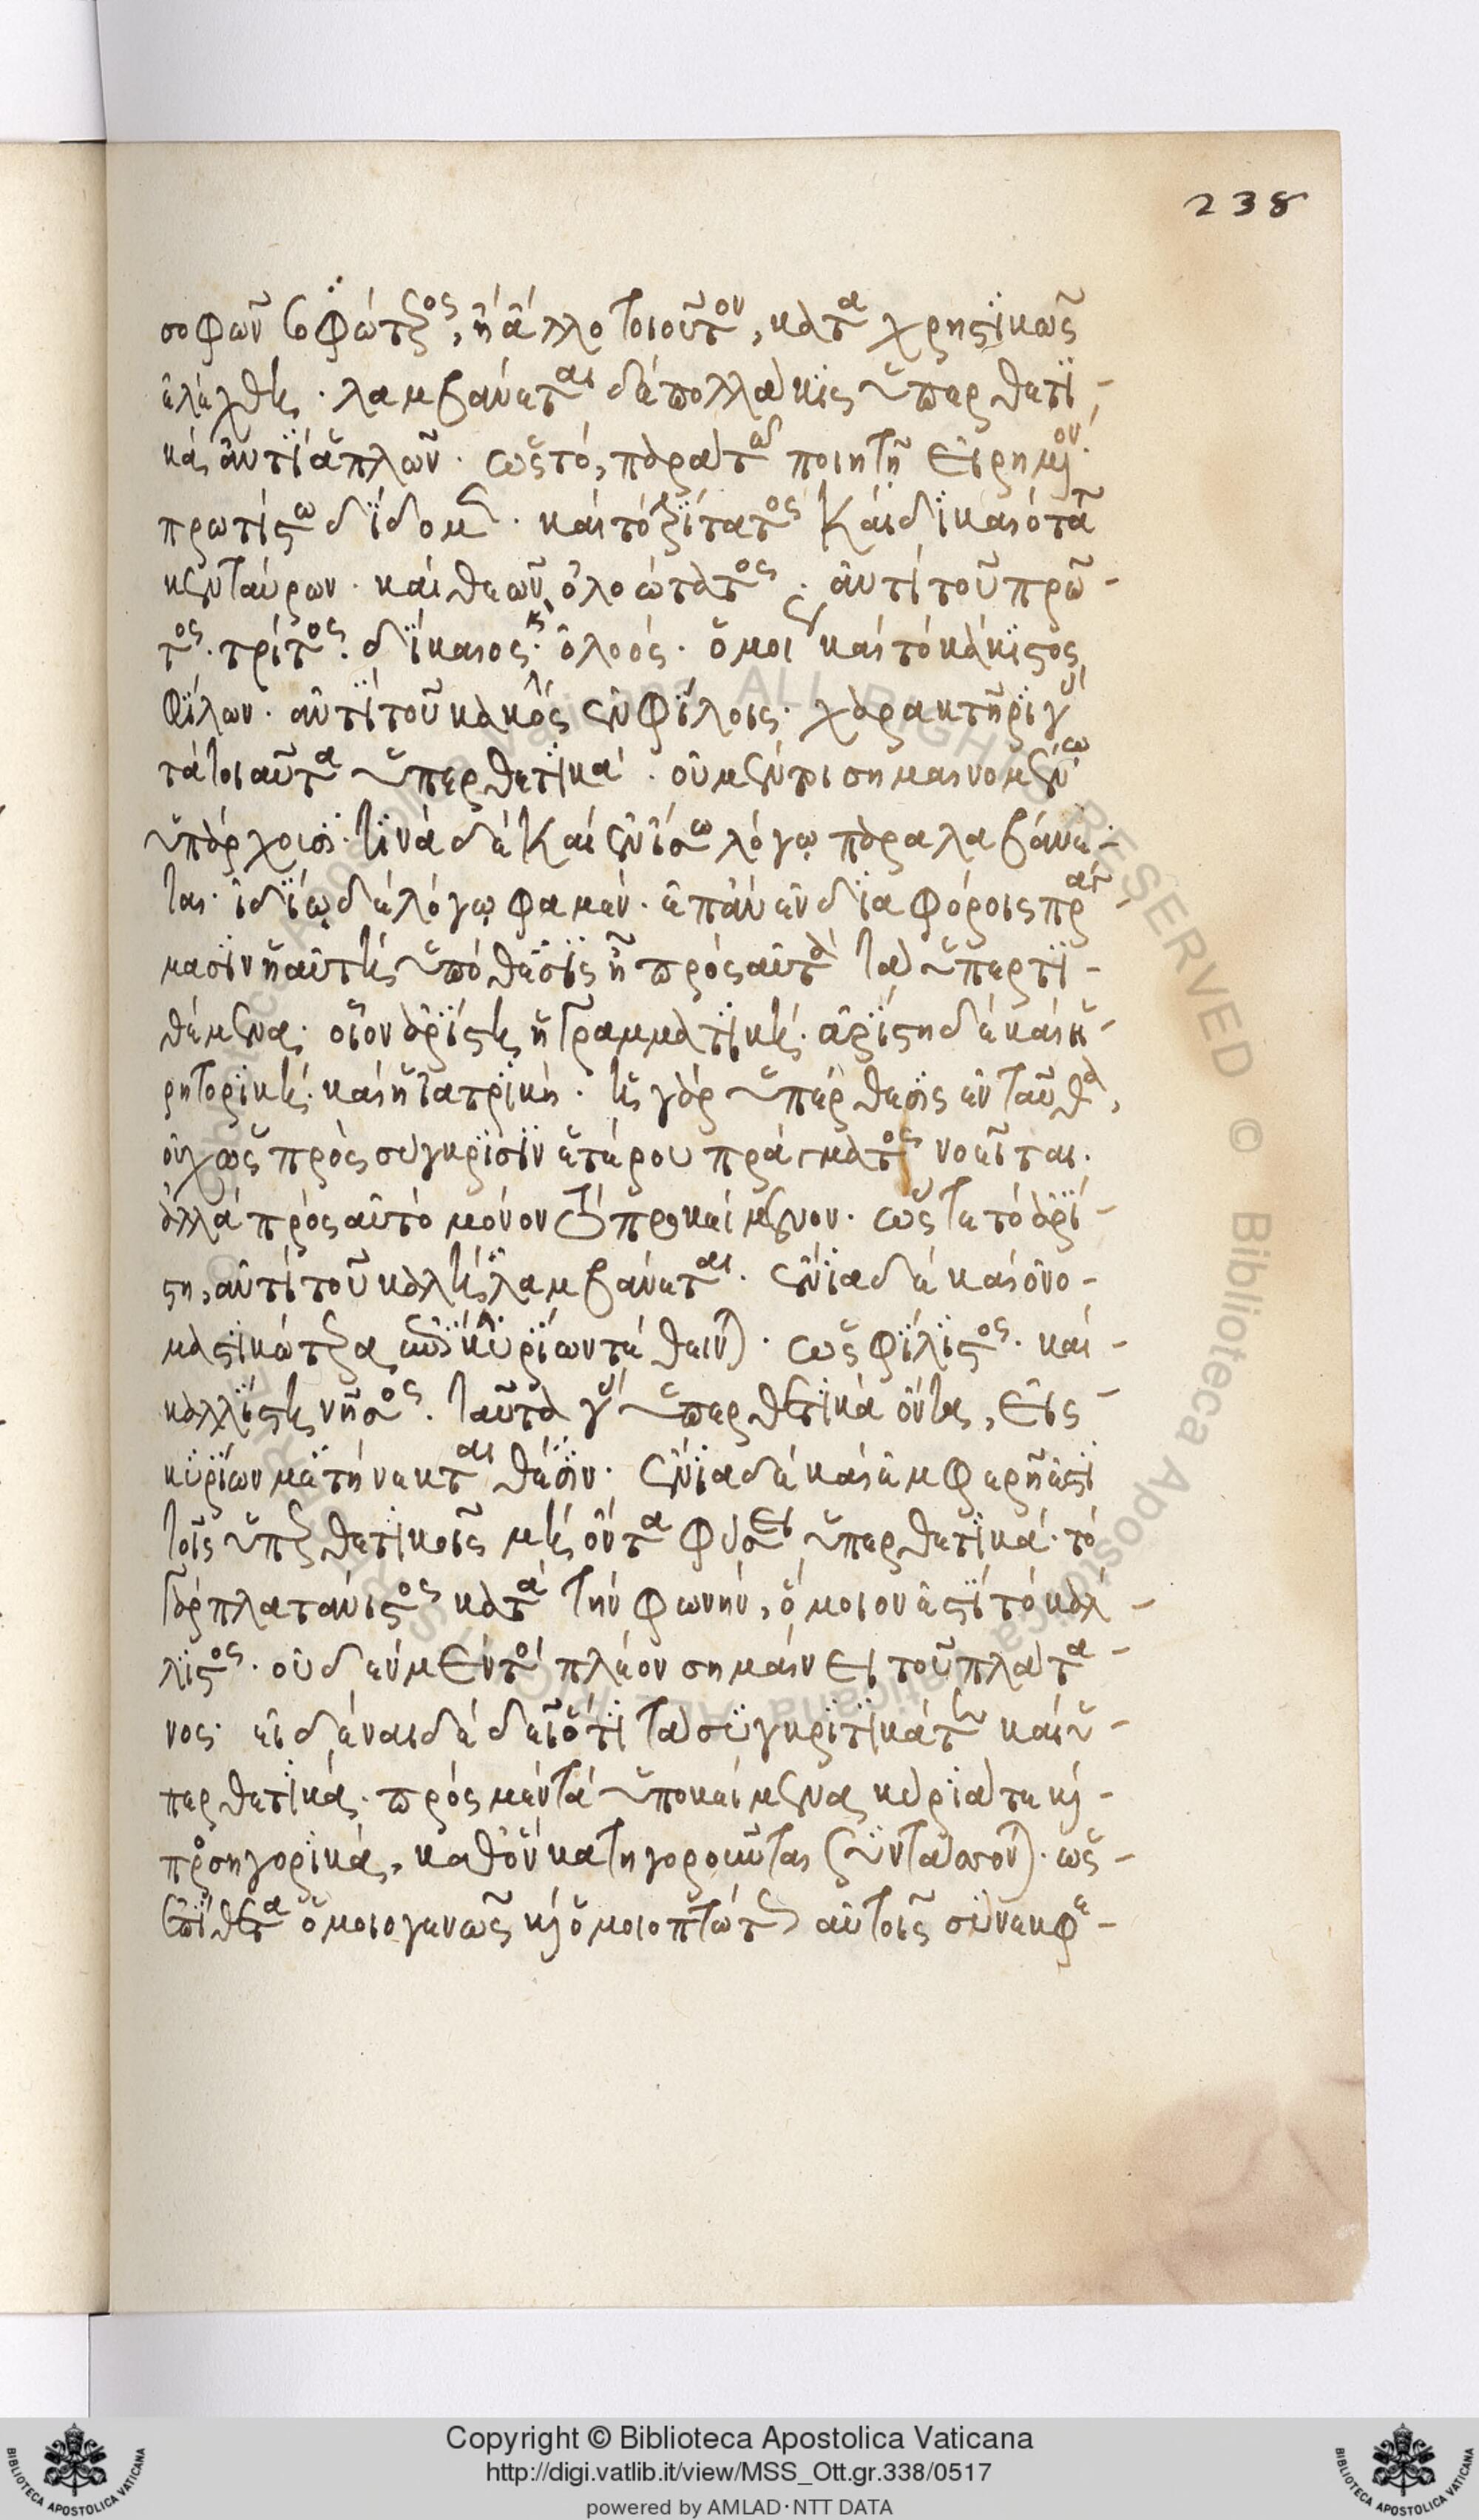 238
σοφῶν σοφώτερος, ἢ ἄλλο τοιοῦτον, καταχρηστικῶς
ἐλέχθη. λαμβάνεται δὲ πολλάκις ὑπερθετι-
κὰ ἀντὶ ἁπλῶν. ὡς τὸ, παρὰ τῷ ποιητῇ εἰρημένον.
πρωτίστω δίδομεν. καὶ τὸ τρίτατος καὶ δικαιότατος
κενταύρων. καὶ θεῶν ὀλοώτατος. ἀντὶ τοῦ πρῶ-
τος. τρίτος. δίκαιος. κ ὀλοός. ὅμοιον καὶ τὸ κάκιστος
φίλων. ἀντὶ τοῦ κακὸς ἐν φίλοις. χαρακτῆρι γοῦν
τὰ τοιαῦτα ὑπερθετικά. οὐ μέντοι σημαινομένῳ
ὑπάρχουσι. τινὰ δὲ καὶ ἐν ἴσῳ λόγῳ παραλαμβάνε-
ται. ἰδίῳ δὲ λόγῳ φαμέν. ἐπὰν ἐν διαφόροις πράγ-
μασιν ἡ αὐτὴ ὑπόθεσις ᾖ πρὸς αὐτὰ τὰ ὑπερτι-
θέμενα. οἷον ἀρίστη ἡ γραμματική. ἀρίστη δὲ καὶ ἡ
ρητορική. καὶ ἡ ἰατρική. ἡ γὰρ ὑπέρθεσις ἐνταῦθα,
οὐχ ὡς πρὸς σύγκρισιν ἑτέρου πράγματος νοεῖται.
ἀλλὰ πρὸς αὐτὸ μόνον τὸ προκείμενον. ὥστε τὸ ἀρί-
στη, ἀντὶ τοῦ καλὴ λαμβάνεται. ἔνια δὲ καὶ ὀνο-
μαστικώτερα ἐπὶ κυρίων τέθεινται. ὡς φίλιστος. καὶ
καλλίστη νῆσος. ταῦτα γοῦν ὑπερθετικὰ ὄντα, εἰς
κυρίων μετήνεκται θέσιν. ἔνια δὲ καὶ ἐμφερῆ ἐστι
τοῖς ὑπερθετικοῖς μὴ ὄντα φύσει ὑπερθετικά. τὸ
γὰρ πλατάνιστος κατὰ τὴν φωνὴν, ὅμοιον ἐστὶ τὸ κάλ-
λιστος. οὐδὲν μέντοι πλέον σημαίνει τοῦ πλάτα-
νος. εἰδέναι δὲ δεῖ ὅτι τὰ συγκριτικά τε καὶ ὑ-
περθετικά. πρὸς μὲν τὰ ὑποκείμενα κύριά τε καὶ
προσηγορικὰ, καθ' ὧν κατηγοροῦνται συντάσσονται. ὡς
ἐπίθετα ὁμοιογενῶς καὶ ὁμοιοπτώτως αὐτοῖς συνεκφέ-
Copyright © Biblioteca Apostolica Vaticana
http://digi.vatlib.it/view/MSS_Ott.gr.338/0517
powered by AMLAD·NTT DATA